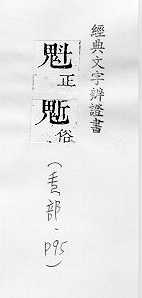 經典文字辨證書
魁正
俗
部·P95)